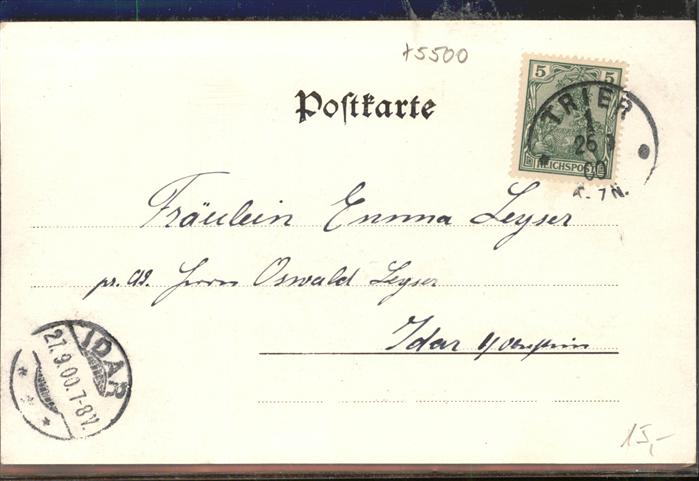 +5500
Postkarte
5 5
REICHSPOST
TRIER
1
26
00
7N.
Fräulein Emma Leyser
pr. Ad. Herrn Oswald Leyser
Idar
IDAR
27.9.00.7-8V.
15,-